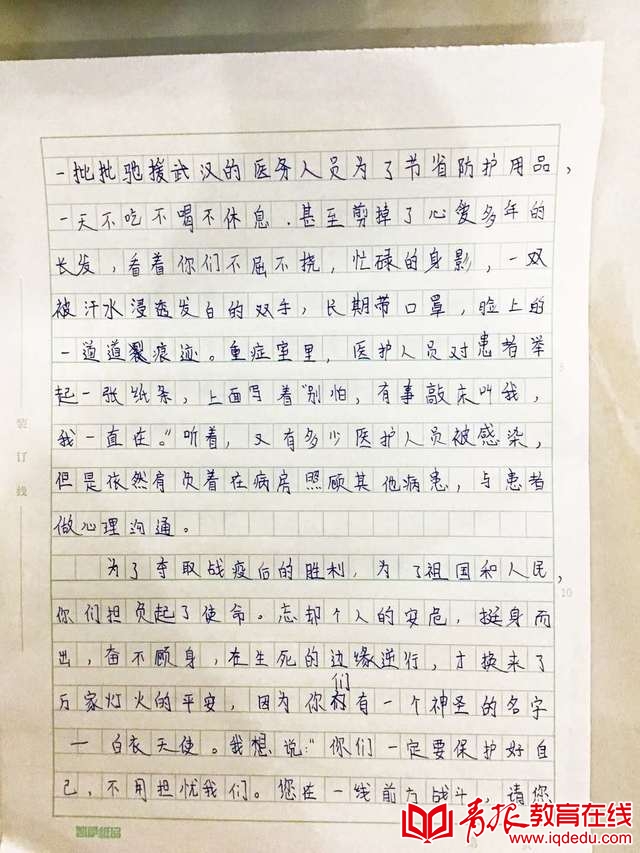 一批批驰援武汉的医务人员为了节省防护用品，
一天不吃不喝不休息．甚至剪掉了心爱多年的
长发，看着你们不屈不挠，忙碌的身影，一双
被汗水浸透发白的双手，长期带口罩，脸上的
一道道裂痕迹。重症室里，医护人员对患者举
起一张纸条，上面写着"别怕，有事敲床叫我，
我一直在。"听着，又有多少医护人员被感染，
但是依然肩负着在病房照顾其他病患，与患者
做心理沟通。
为了夺取战疫后的胜利，为了祖国和人民，
你们担负起了使命。忘却个人的安危，挺身而
出，奋不顾身，在生死的边缘逆行，才换来了
万家灯火的平安，因为你们有一个神圣的名字
一白衣天使。我想说："你们一定要保护好自
己，不用担忧我们。您在一线前方战斗，请您
装订线
10
青报教育在线
www.iqdedu.com